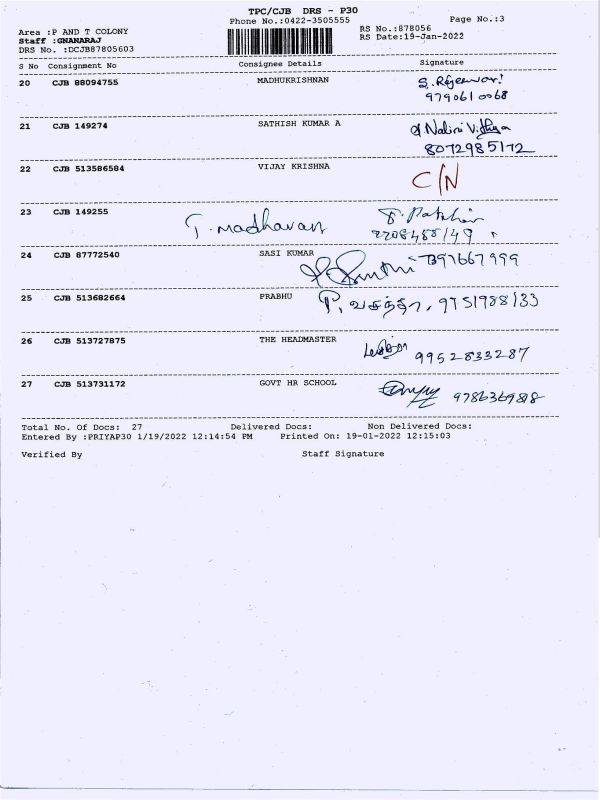 TPC/CJB DRS - P30
Phone No.:0422-3505555 Page No.:3
Area :P AND T COLONY RS No.:878056
Staff :GNANARAJ RS Date:19-Jan-2022
DRS No. :DCJB87805603
S No Consignment No Consignee Details Signature
20 CJB 88094755 MADHUKRISHNAN
9790610068
21 CJB 149274 SATHISH KUMAR A Nalini Vidhya
8072985172
22 CJB 513586584 VIJAY KRISHNA C/N
23 CJB 149255 T. Madhavan
24 CJB 87772540 SASI KUMAR
25 CJB 513682664 PRABHU P. வசந்தா, 9751988133
26 CJB 513727875 THE HEADMASTER 9952833287
27 CJB 513731172 GOVT HR SCHOOL
Total No. Of Docs: 27 Delivered Docs: Non Delivered Docs:
Entered By :PRIYAP30 1/19/2022 12:14:54 PM Printed On: 19-01-2022 12:15:03
Verified By Staff Signature